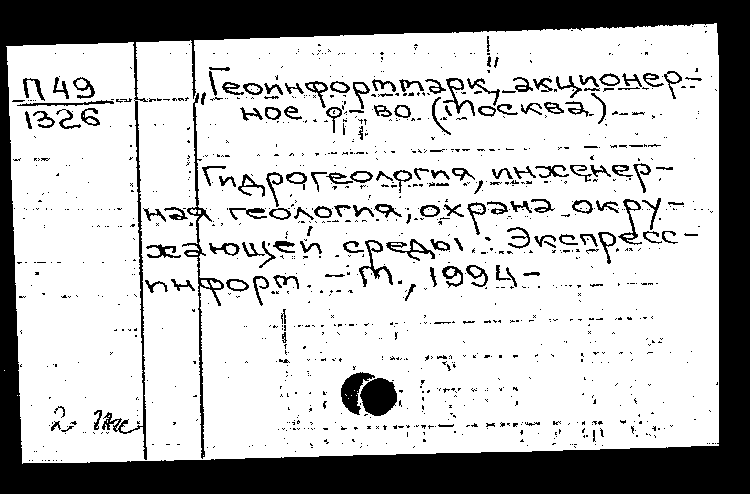 П 49
1326
„Геоинформмарк", акционер-
ное о-во (Москва).
Гидрогеология, инженер-
ная геология, охрана окру-
жающей среды : Экспресс-
информ. – М., 1994 –
2